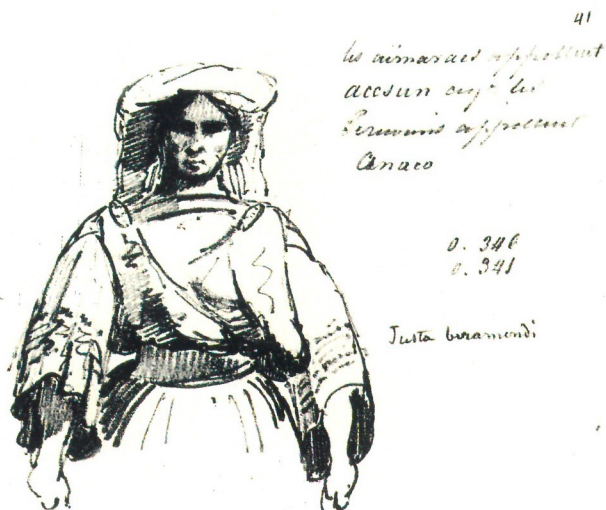 41
les aimaraes appellent
accsun ce que les
Peruvians appellent
Anaco
0. 346
0. 341
Justa beramendi